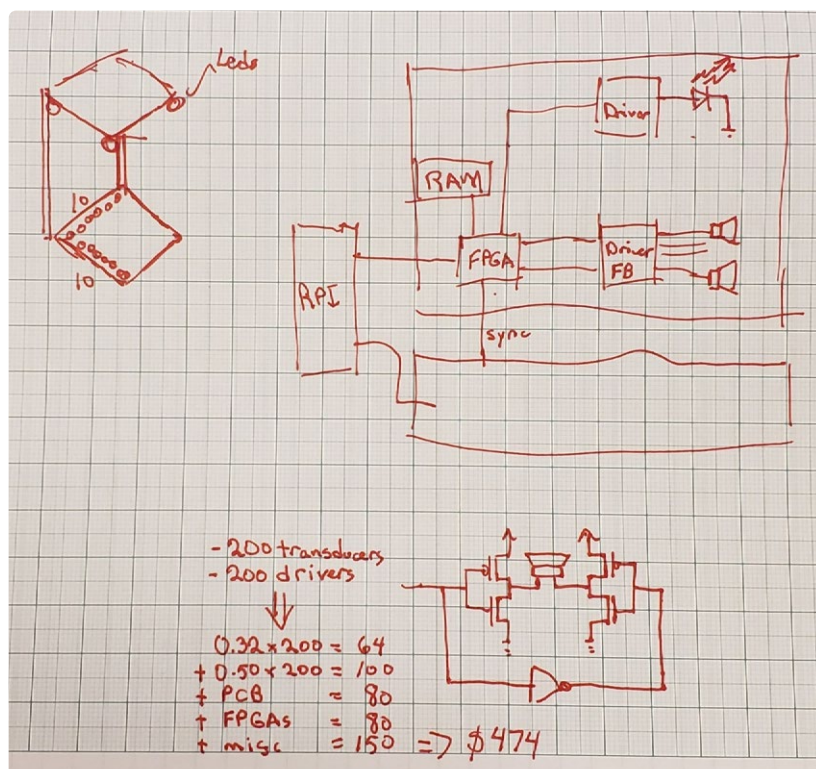 Leds
10
10
Driver
RAM
RPI
FPGA
Driver
FB
sync
- 200 transducers
- 200 drivers
0.32 × 200 = 64
+ 0.50 × 200 = 100
+ PCB = 80
+ FPGAs = 80
+ misc = 150 => $474